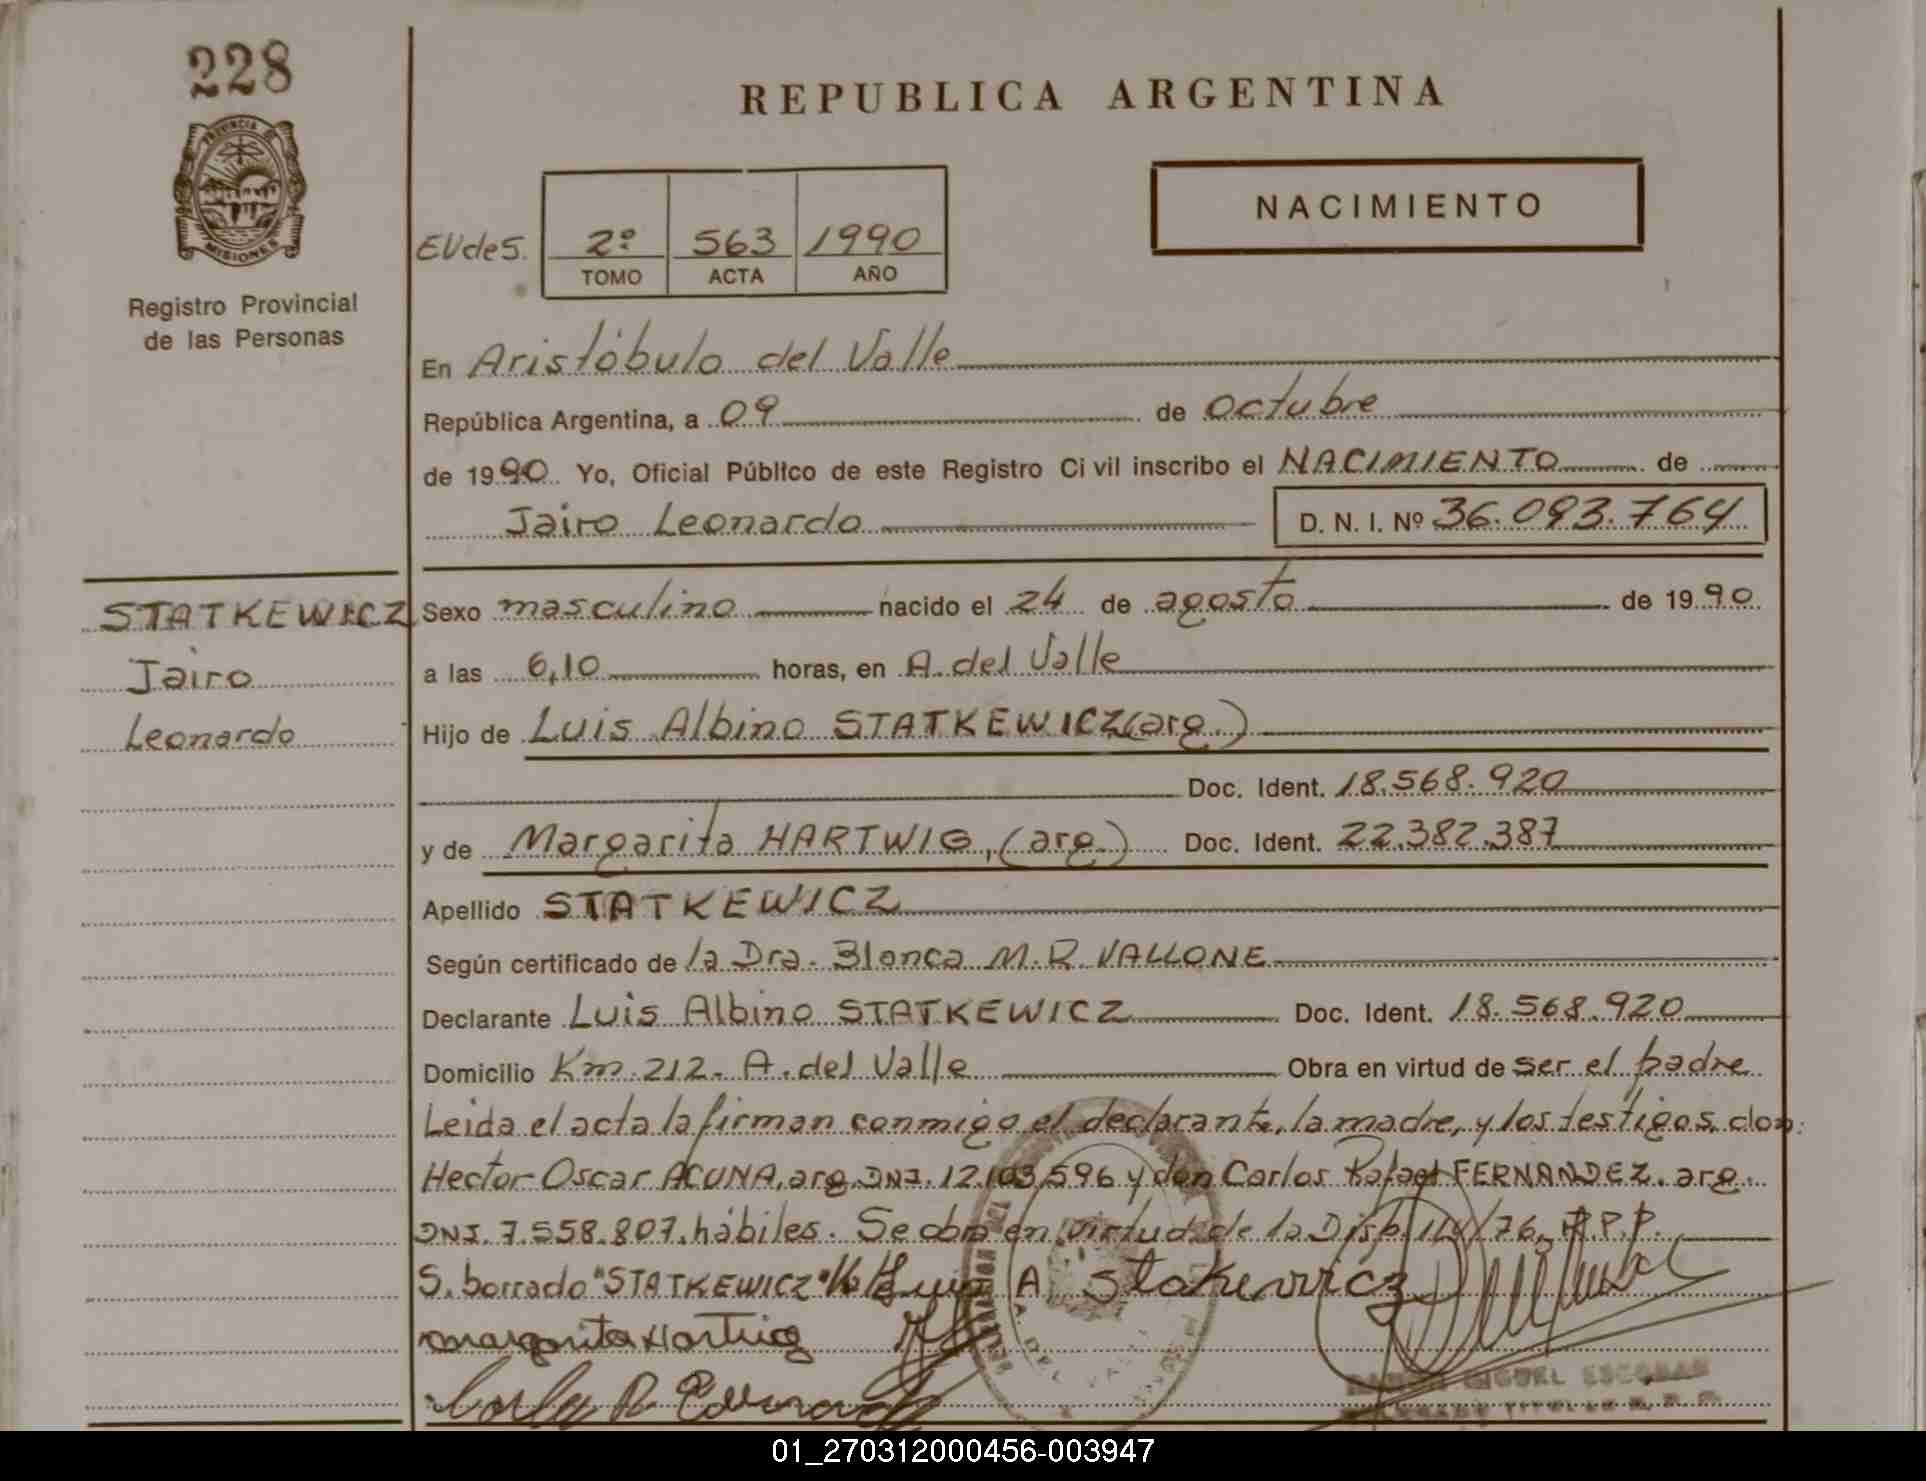 228
PROVINCIA DE
MISIONES
Registro Provincial
de las Personas
REPUBLICA ARGENTINA
NACIMIENTO
EVdeS. 2º 563 1990
TOMO ACTA AÑO
En Aristóbulo del Valle
República Argentina, a 09 de octubre
de 1990 Yo, Oficial Público de este Registro Civil inscribo el NACIMIENTO de
Jairo Leonardo D. N. I. Nº 36.093.764
STATKEWICZ
Jairo
Leonardo
Sexo masculino nacido el 24 de agosto de 1990
a las 6,10 horas, en A. del Valle
Hijo de Luis Albino STATKEWICZ (arg.)
Doc. Ident. 18.568.920
y de Margarita HARTWIG, (arg.) Doc. Ident. 22.382.387
Apellido STATKEWICZ
Según certificado de la Dra. Blanca M. R. VALLONE
Declarante Luis Albino STATKEWICZ Doc. Ident. 18.568.920
Domicilio Km. 212. A. del Valle Obra en virtud de ser el padre
Leida el acta la firman conmigo el declarante, la madre, y los testigos, don:
Hector Oscar ACUNA, arg. DNI. 12.103.596 y don Carlos Rafael FERNANDEZ. arg.
DNI. 7.558.807. hábiles. Se obra en virtud de la Disp. /76, R.P.P.
S. borrado "STATKEWICZ" Luis A Statkewicz
Margarita Hartwig
Carlos R
A. DEL VALLE
MIGUEL ESCOBAR
01_270312000456-003947